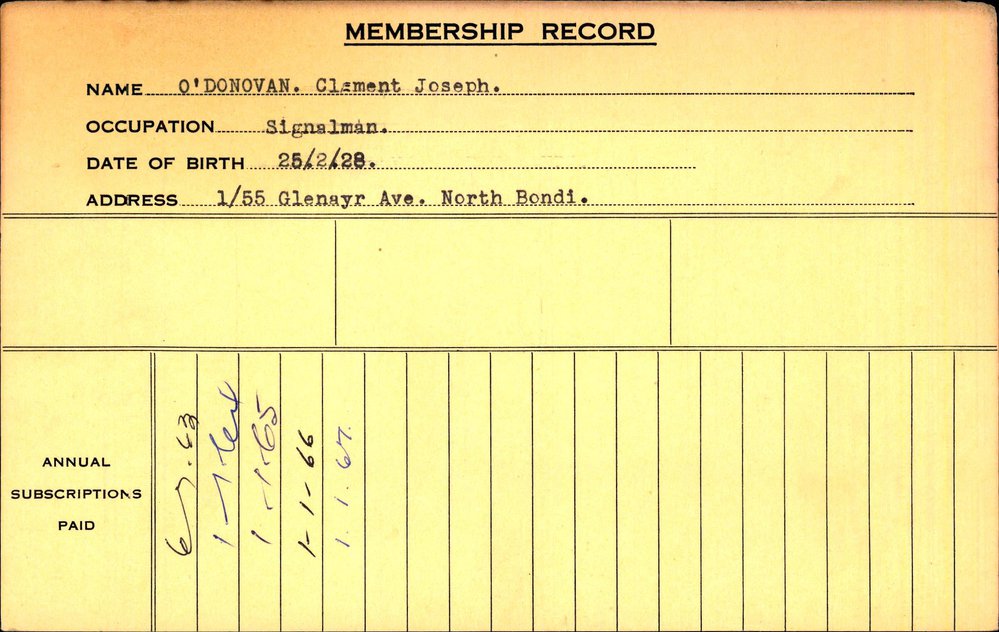 MEMBERSHIP RECORD
NAME O'DONOVAN. Clement Joseph.
OCCUPATION Signalman.
DATE OF BIRTH 25/2/28.
ADDRESS 1/55 Glenayr Ave. North Bondi.
ANNUAL
SUBSCRIPTIONS
PAID
6-7.63
1-7-64
1-1-65
1-1-66
1.1.67.